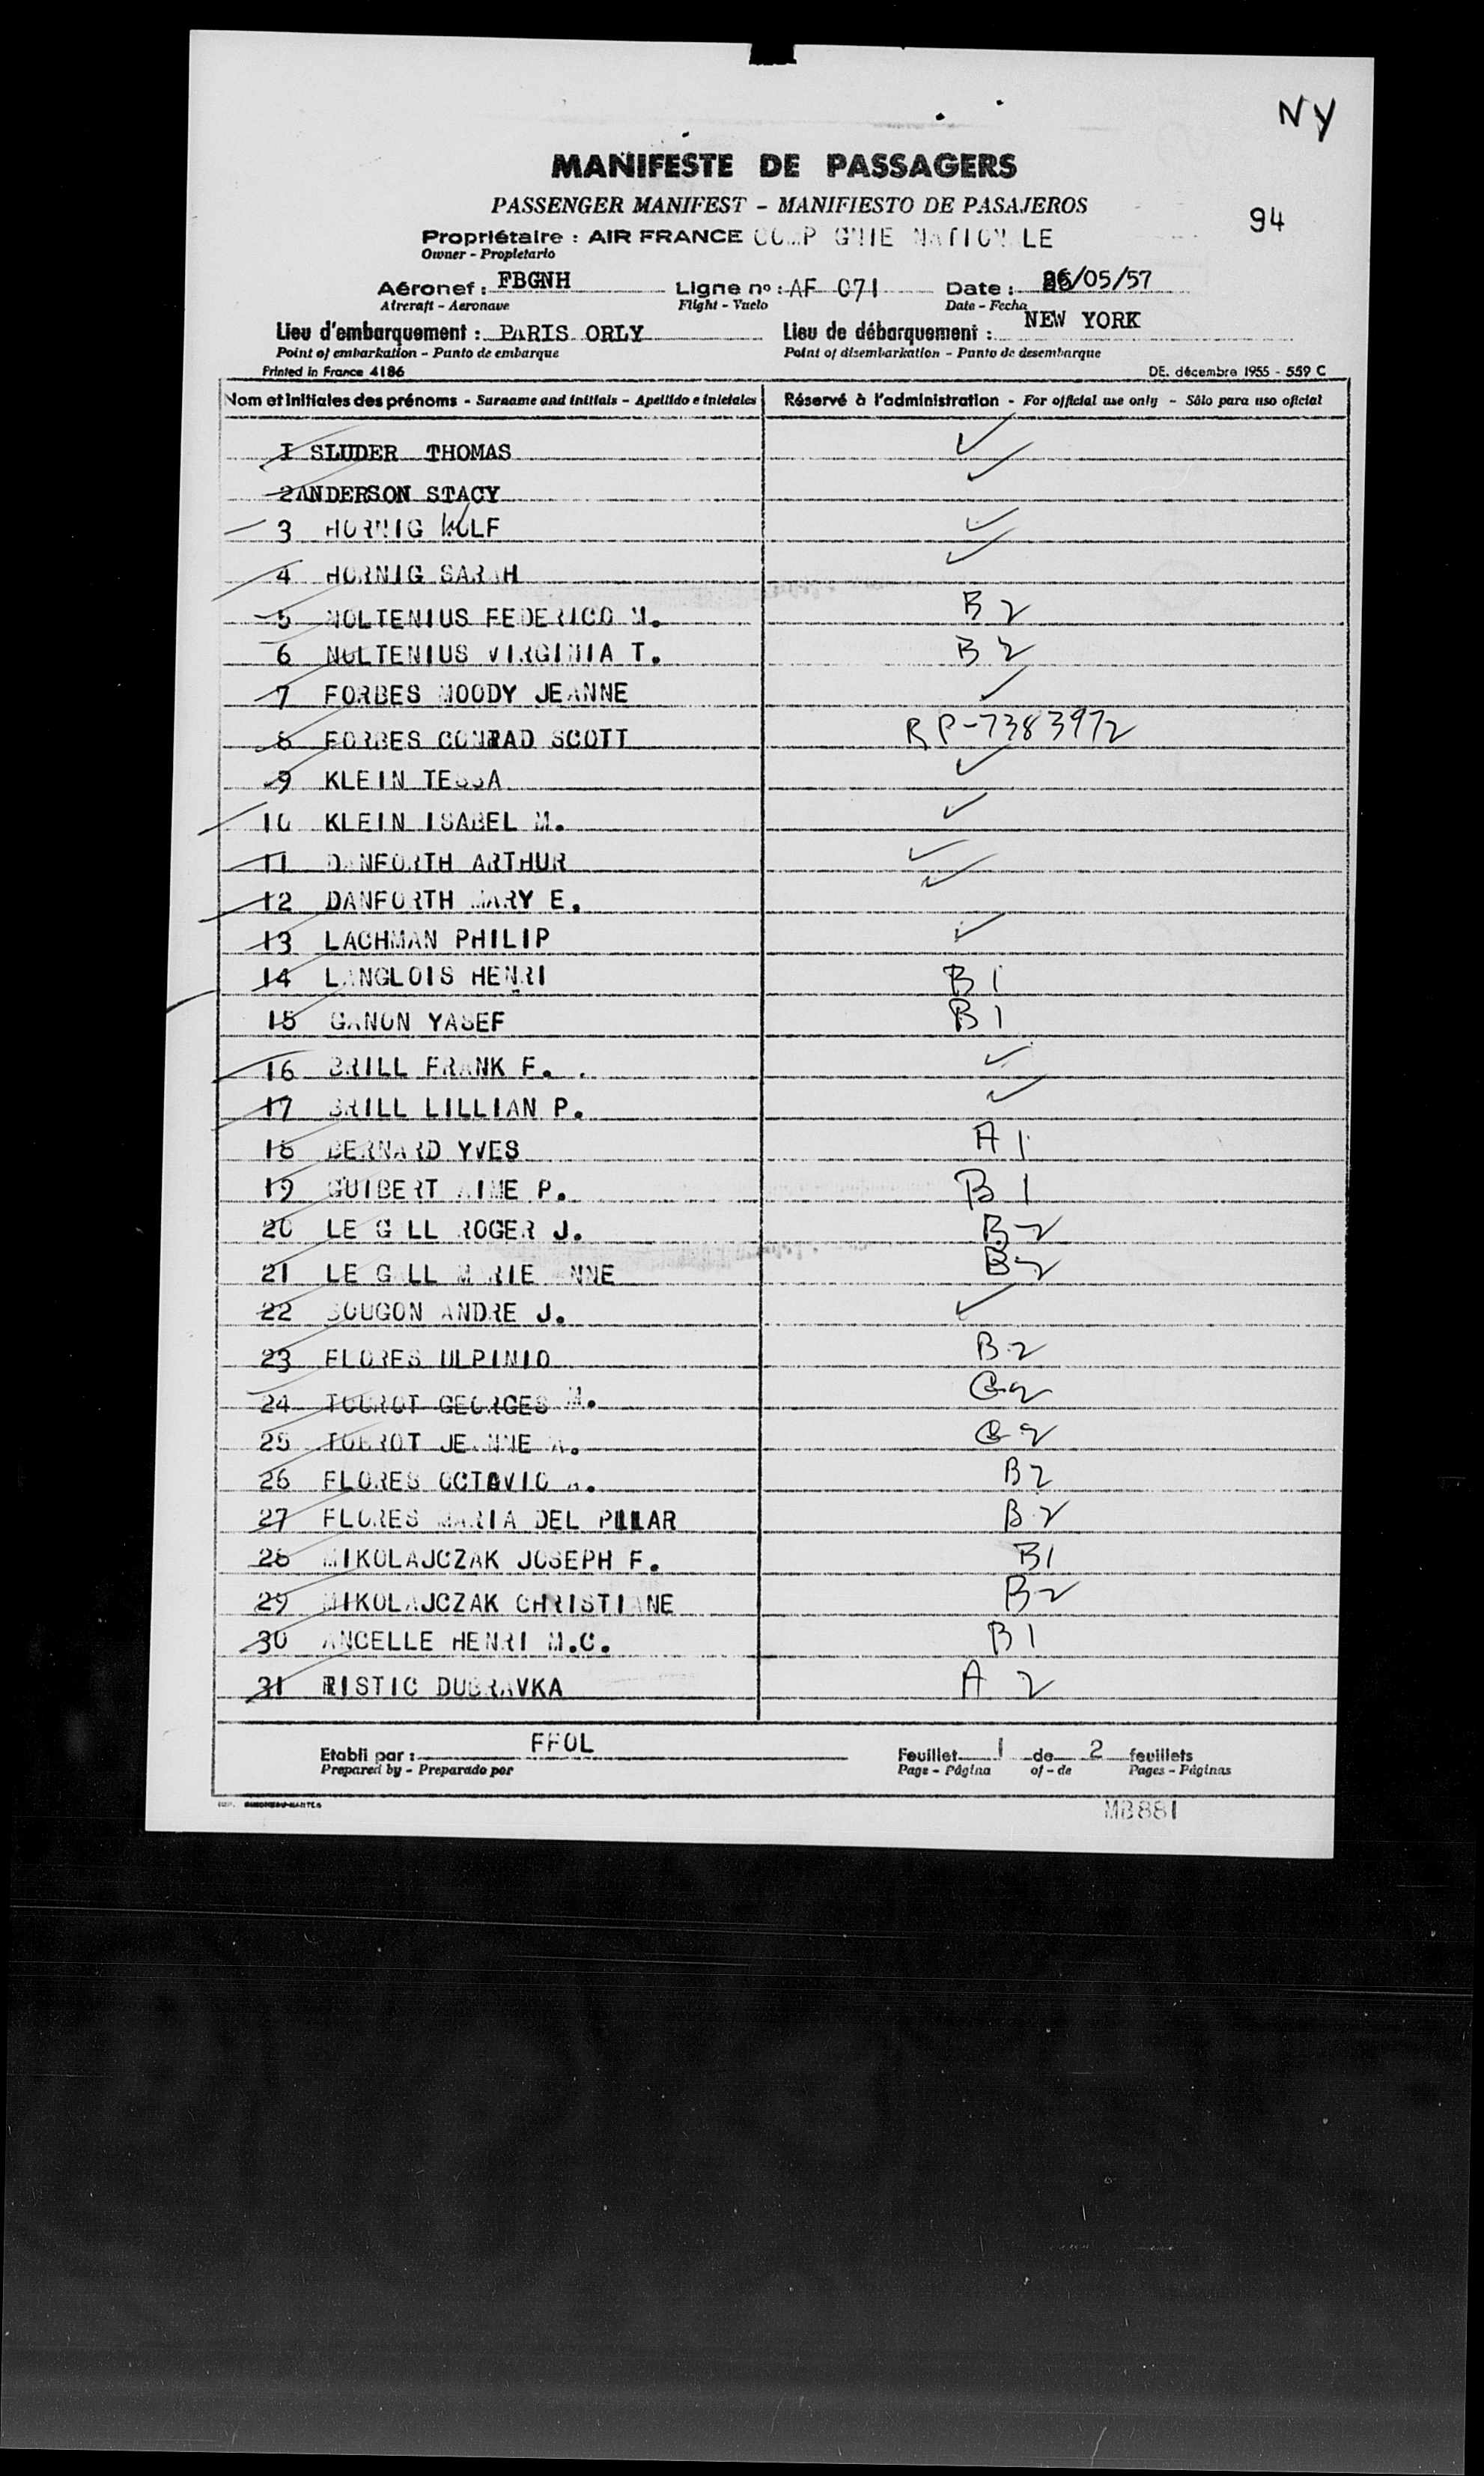 NY
MANIFESTE DE PASSAGERS
PASSENGER MANIFEST - MANIFIESTO DE PASAJEROS
94
Propriétaire : AIR FRANCE COMPAGNIE NATIONALE
Owner - Propietario
Aéronef : FBGNH Ligne no : AF 071 Date : 26/05/57
Aircraft - Aeronave Flight - Vuelo Date - Fecha
Lieu d'embarquement : PARIS ORLY Lieu de débarquement : NEW YORK
Point of embarkation - Punto de embarque Point of disembarkation - Punto de desembarque
Printed in France 4186 DE. décembre 1955 - 559 C
Nom et initiales des prénoms - Surname and initials - Apellido e iniciales Réservé à l'administration - For official use only - Sólo para uso oficial
1 SLUDER THOMAS ✓
2 ANDERSON STACY ✓
3 HORNIG WOLF ✓
4 HORNIG SARAH ✓
5 NOLTENIUS FEDERICO M. B2
6 NOLTENIUS VIRGINIA T. B2
7 FORBES MOODY JEANNE ✓
8 FORBES CONRAD SCOTT RP-7383972
9 KLEIN TESSA ✓
10 KLEIN ISABEL M. ✓
11 DANFORTH ARTHUR ✓
12 DANFORTH MARY E. ✓
13 LACHMAN PHILIP ✓
14 LANGLOIS HENRI B1
15 GANON YASEF B1
16 BRILL FRANK F. ✓
17 BRILL LILLIAN P. ✓
18 BERNARD YVES A1
19 GUIBERT AIME P. B1
20 LE GALL ROGER J. B2
21 LE GALL MARIE ANNE B2
22 BOUGON ANDRE J. ✓
23 FLORES ULPINIO B2
24 TOUROT GEORGES M.
25 TOUROT JEANNE
26 FLORES OCTAVIO A. B2
27 FLORES MARIA DEL PILAR B2
28 MIKOLAJCZAK JOSEPH F. B1
29 MIKOLAJCZAK CHRISTIANE B2
30 ANCELLE HENRI M.C. B1
31 RISTIC DUBRAVKA A2
Etabli par : FFOL Feuillet 1 de 2 feuillets
Prepared by - Preparado por Page - Página of - de Pages - Páginas
MB881